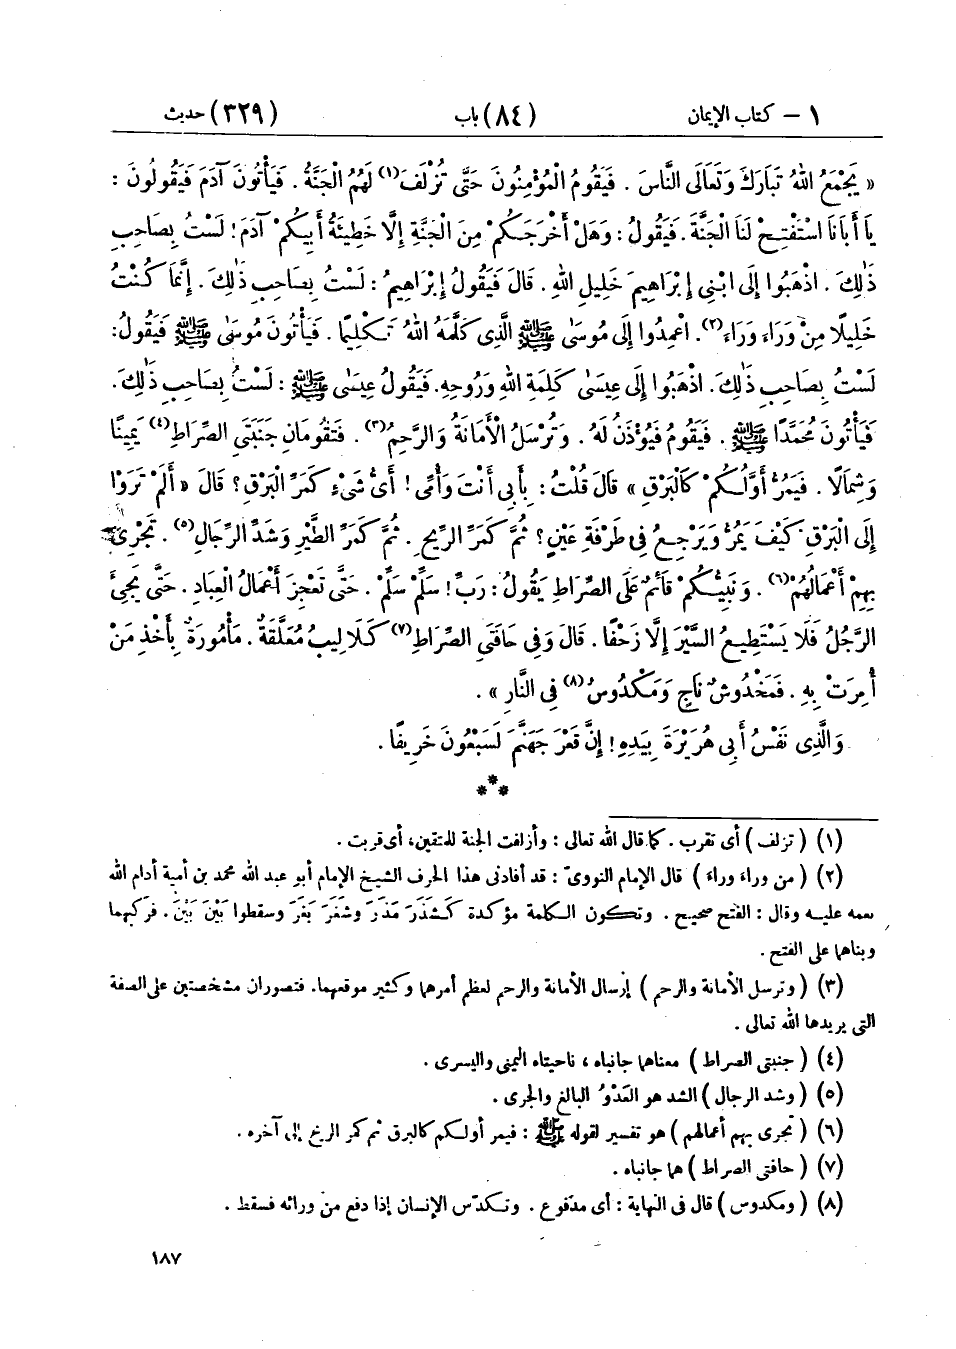 ١ - كتاب الإيمان (٨٤) باب (٣٢٩) حديث
« يَجْمَعُ اللهُ تَبَارَكَ وَتَعَالَى النَّاسَ . فَيَقُومُ الْمُؤْمِنُونَ حَتَّى تُزْلَفَ(١) لَهُمُ الْجَنَّةُ . فَيَأْتُونَ آدَمَ فَيَقُولُونَ :
يَا أَبَانَا اسْتَفْتِحْ لَنَا الْجَنَّةَ . فَيَقُولُ : وَهَلْ أَخْرَجَكُمْ مِنَ الْجَنَّةِ إِلَّا خَطِيئَةُ أَبِيكُمْ آدَمَ ! لَسْتُ بِصَاحِبِ
ذَٰلِكَ . اذْهَبُوا إِلَى ابْنِي إِبْرَاهِيمَ خَلِيلِ اللهِ . قَالَ فَيَقُولُ إِبْرَاهِيمُ : لَسْتُ بِصَاحِبِ ذَٰلِكَ . إِنَّمَا كُنْتُ
خَلِيلًا مِنْ وَرَاءَ وَرَاءَ(٢). اعْمِدُوا إِلَى مُوسَى ﷺ الَّذِى كَلَّمَهُ اللهُ تَكْلِيمًا . فَيَأْتُونَ مُوسَى ﷺ فَيَقُولُ:
لَسْتُ بِصَاحِبِ ذَٰلِكَ. اذْهَبُوا إِلَى عِيسَى كَلِمَةِ اللهِ وَرُوحِهِ. فَيَقُولُ عِيسَى ﷺ : لَسْتُ بِصَاحِبِ ذَٰلِكَ.
فَيَأْتُونَ مُحَمَّدًا ﷺ . فَيَقُومُ فَيُؤْذَنُ لَهُ . وَتُرْسَلُ الْأَمَانَةُ وَالرَّحِمُ(٣) . فَتَقُومَانِ جَنَبَتَىِ الصِّرَاطِ(٤) يَمِينًا
وَشِمَالًا . فَيَمُرُّ أَوَّلُكُمْ كَالْبَرْقِ » قَالَ قُلْتُ : بِأَبِى أَنْتَ وَأُمِّى ! أَىُّ شَىْءٍ كَمَرِّ الْبَرْقِ ؟ قَالَ « أَلَمْ تَرَوْا
إِلَى الْبَرْقِ كَيْفَ يَمُرُّ وَيَرْجِعُ فِى طَرْفَةِ عَيْنٍ ؟ ثُمَّ كَمَرِّ الرِّيحِ . ثُمَّ كَمَرِّ الطَّيْرِ وَشَدِّ الرِّجَالِ(٥) . تَجْرِى
بِهِمْ أَعْمَالُهُمْ(٦) . وَنَبِيُّكُمْ قَائِمٌ عَلَى الصِّرَاطِ يَقُولُ : رَبِّ ! سَلِّمْ سَلِّمْ . حَتَّى تَعْجِزَ أَعْمَالُ الْعِبَادِ . حَتَّى يَجِئَ
الرَّجُلُ فَلَا يَسْتَطِيعُ السَّيْرَ إِلَّا زَحْفًا . قَالَ وَفِى حَافَتَىِ الصِّرَاطِ(٧) كَلَالِيبُ مُعَلَّقَةٌ . مَأْمُورَةٌ بِأَخْذِ مَنْ
أُمِرَتْ بِهِ . فَمَخْدُوشٌ نَاجٍ وَمَكْدُوسٌ(٨) فِى النَّارِ » .
وَالَّذِى نَفْسُ أَبِى هُرَيْرَةَ بِيَدِهِ ! إِنَّ قَعْرَ جَهَنَّمَ لَسَبْعُونَ خَرِيفًا .
***
(١) ( تزلف ) أى تقرب . كما قال الله تعالى : وأزلفت الجنة للمتقين، أى قربت .
(٢) ( من وراء وراء ) قال الإمام النووىّ : قد أفادنى هذا الحرف الشيخ الإمام أبو عبد الله محمد بن أمية أدام الله
نعمه عليه وقال : الفتح صحيح . وتكون الكلمة مؤكدة كَشَذَرَ مَذَرَ وشَغَرَ بَغَرَ وسقطوا بَيْنَ بَيْنَ . فركبهما
وبناهما على الفتح .
(٣) ( وترسل الأمانة والرحم ) إرسال الأمانة والرحم لعظم أمرهما وكثير موقعهما. فتصوران مشخصتين على الصفة
التى يريدها الله تعالى .
(٤) ( جنبتى الصراط ) معناهما جانباه ، ناحيتاه اليمنى واليسرى .
(٥) ( وشد الرجال ) الشد هو العَدْوُ البالغ والجرى .
(٦) ( تجرى بهم أعمالهم ) هو تفسير لقوله ﷺ : فيمر أولكم كالبرق ثم كمر الريح إلى آخره .
(٧) ( حافتى الصراط ) هما جانباه .
(٨) ( ومكدوس ) قال فى النهاية : أى مدفوع . وتكدّس الإنسان إذا دفع من ورائه فسقط .
١٨٧